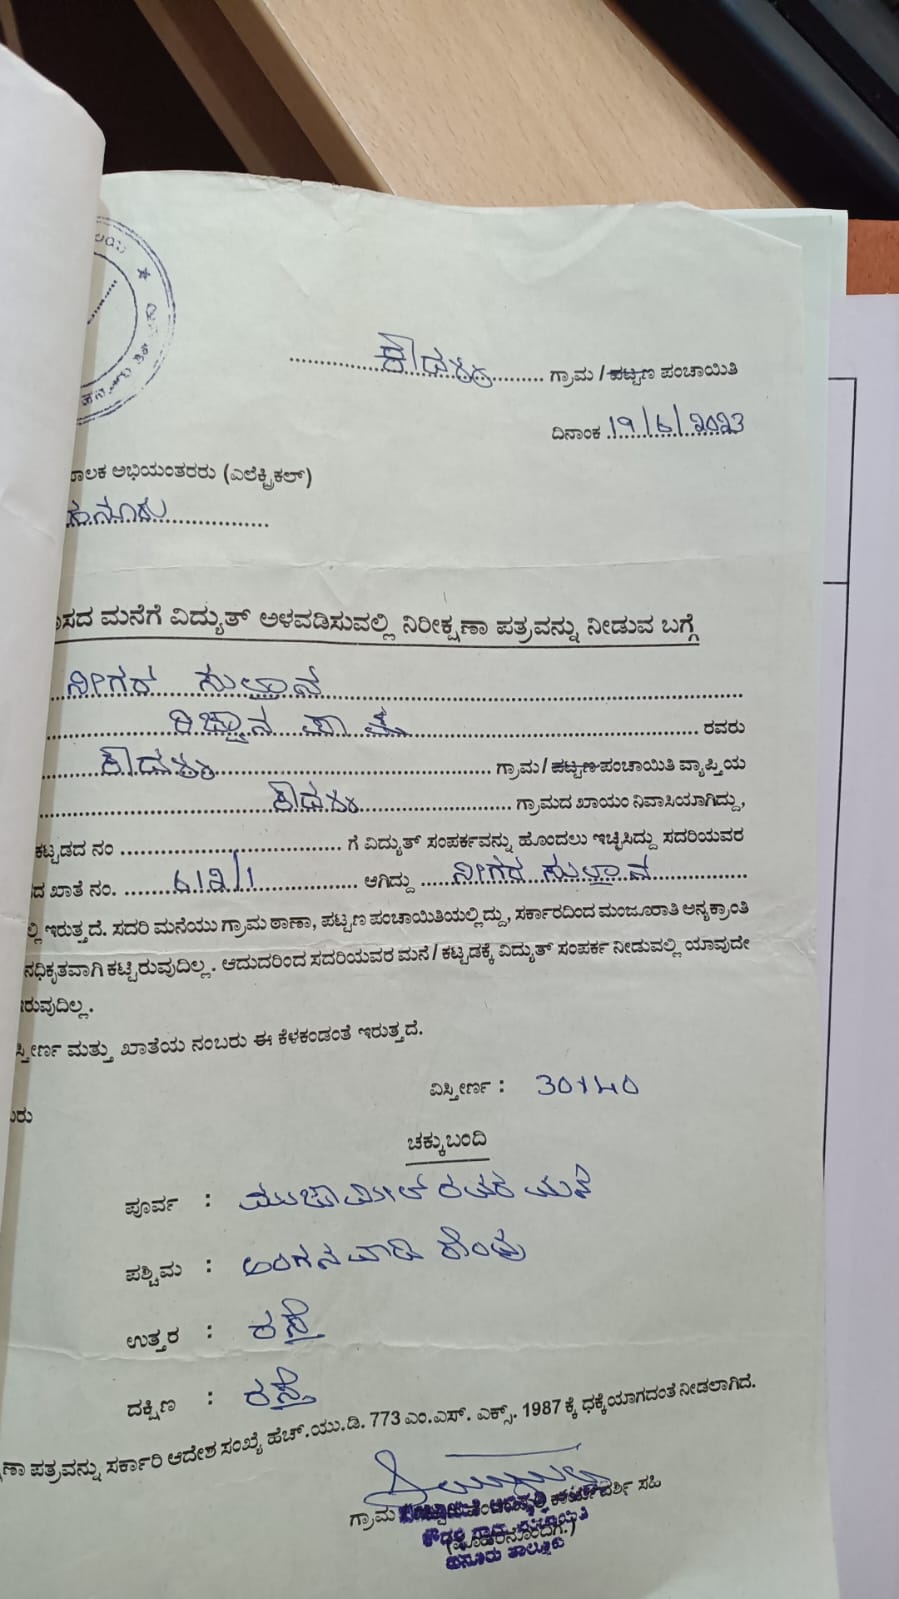 ಕೌದಳ್ಳಿ ಗ್ರಾಮ / ಪಟ್ಟಣ ಪಂಚಾಯಿತಿ
ದಿನಾಂಕ 19/6/2023
ಪಾಲಕ ಅಭಿಯಂತರರು (ಎಲೆಕ್ಟ್ರಿಕಲ್)
ಹನೂರು
ವಾಸದ ಮನೆಗೆ ವಿದ್ಯುತ್ ಅಳವಡಿಸುವಲ್ಲಿ ನಿರೀಕ್ಷಣಾ ಪತ್ರವನ್ನು ನೀಡುವ ಬಗ್ಗೆ
ನೀಗರ ಸುಲ್ತಾನ
ರಿಜ್ವಾನ ಪಾಷ ರವರು
ಕೌದಳ್ಳಿ ಗ್ರಾಮ/ ಪಟ್ಟಣ ಪಂಚಾಯಿತಿ ವ್ಯಾಪ್ತಿಯ
ಕೌದಳ್ಳಿ ಗ್ರಾಮದ ಖಾಯಂ ನಿವಾಸಿಯಾಗಿದ್ದು,
ಕಟ್ಟಡದ ನಂ ಗೆ ವಿದ್ಯುತ್ ಸಂಪರ್ಕವನ್ನು ಹೊಂದಲು ಇಚ್ಛಿಸಿದ್ದು ಸದರಿಯವರ
ದ ಖಾತೆ ನಂ. 612/1 ಆಗಿದ್ದು ನೀಗರ ಸುಲ್ತಾನ
ಲ್ಲಿ ಇರುತ್ತದೆ. ಸದರಿ ಮನೆಯು ಗ್ರಾಮ ಠಾಣಾ, ಪಟ್ಟಣ ಪಂಚಾಯಿತಿಯಲ್ಲಿದ್ದು, ಸರ್ಕಾರದಿಂದ ಮಂಜೂರಾತಿ ಅನ್ಯಕ್ರಾಂತಿ
ನಧಿಕೃತವಾಗಿ ಕಟ್ಟಿರುವುದಿಲ್ಲ. ಆದುದರಿಂದ ಸದರಿಯವರ ಮನೆ / ಕಟ್ಟಡಕ್ಕೆ ವಿದ್ಯುತ್ ಸಂಪರ್ಕ ನೀಡುವಲ್ಲಿ ಯಾವುದೇ
ರುವುದಿಲ್ಲ.
ಸ್ತೀರ್ಣ ಮತ್ತು ಖಾತೆಯ ನಂಬರು ಈ ಕೆಳಕಂಡಂತೆ ಇರುತ್ತದೆ.
ವಿಸ್ತೀರ್ಣ : 30x40
ರು
ಚಕ್ಕುಬಂದಿ
ಪೂರ್ವ : ರವರ ಮನೆ
ಪಶ್ಚಿಮ : ಅಂಗನವಾಡಿ ಕೇಂದ್ರ
ಉತ್ತರ : ರಸ್ತೆ
ದಕ್ಷಿಣ : ರಸ್ತೆ
ಣಾ ಪತ್ರವನ್ನು ಸರ್ಕಾರಿ ಆದೇಶ ಸಂಖ್ಯೆ ಹೆಚ್.ಯು.ಡಿ. 773 ಎಂ.ಎಸ್. ಎಕ್ಸ್. 1987 ಕ್ಕೆ ಧಕ್ಕೆಯಾಗದಂತೆ ನೀಡಲಾಗಿದೆ.
ಗ್ರಾಮ ಸಹಿ
(ಮೊಹರಿನೊಂದಿಗೆ.)
ಹನೂರು ತಾಲ್ಲೂಕು